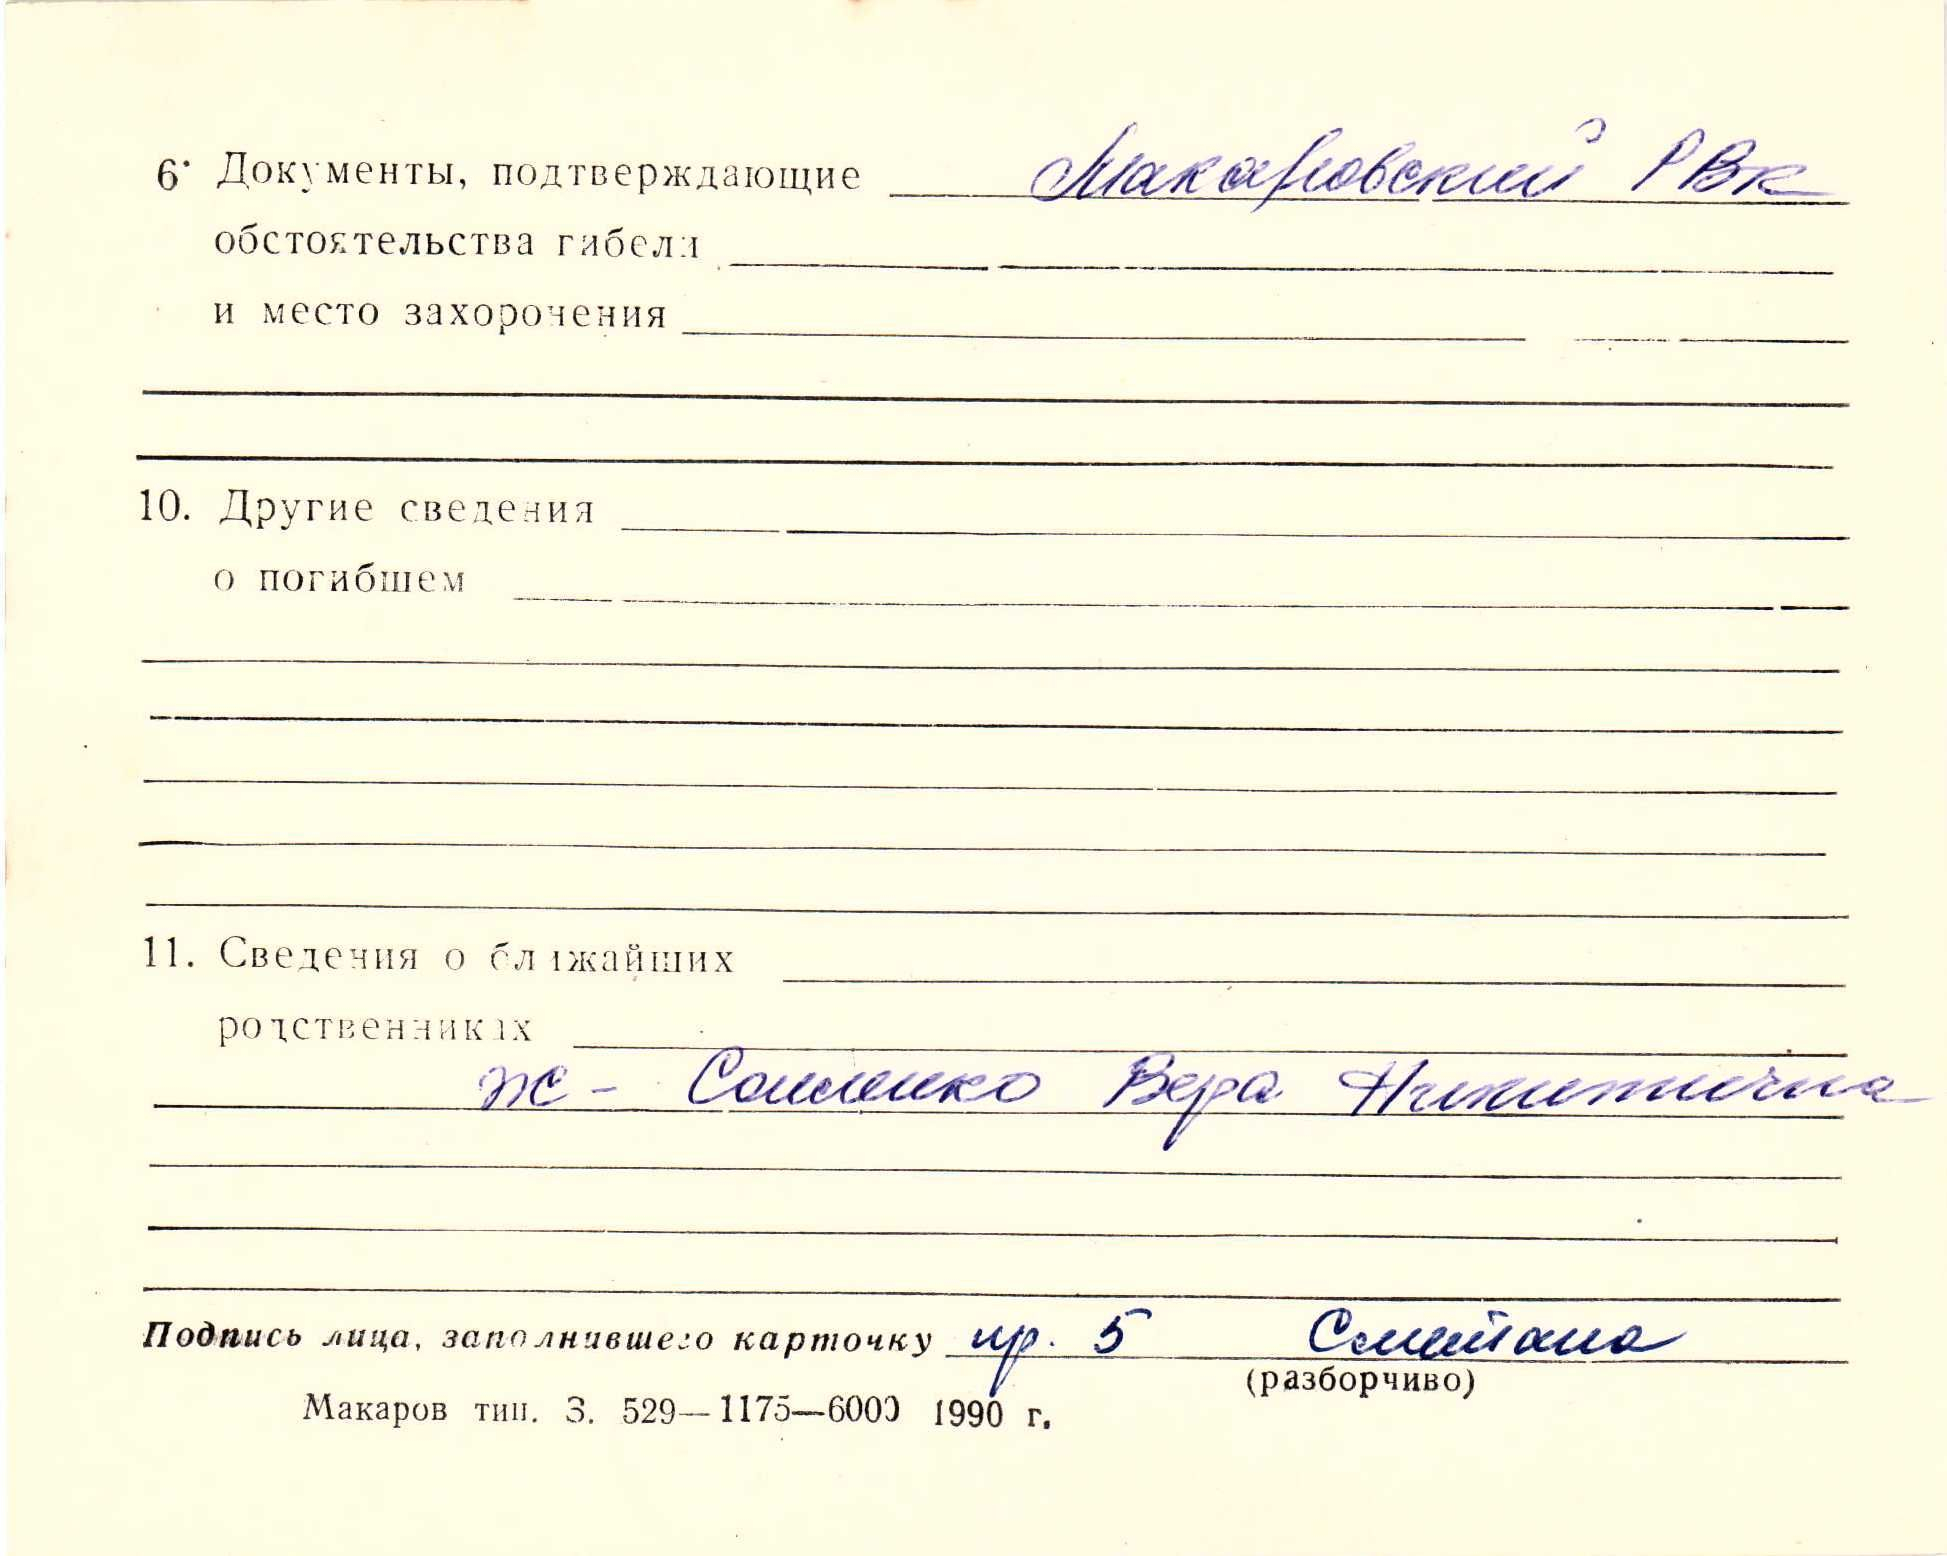 6· Документы, подтверждающие Макаровский РВк
обстоятельства гибели
и место захоронения
10. Другие сведения
о погибшем
11. Сведения о ближайших
родственниках
ж - Сошенко Вера Никитична
Подпись лица, заполнившего карточку пр. 5 Сметана
(разборчиво)
Макаров тип. З. 529—1175—6000 1990 г.